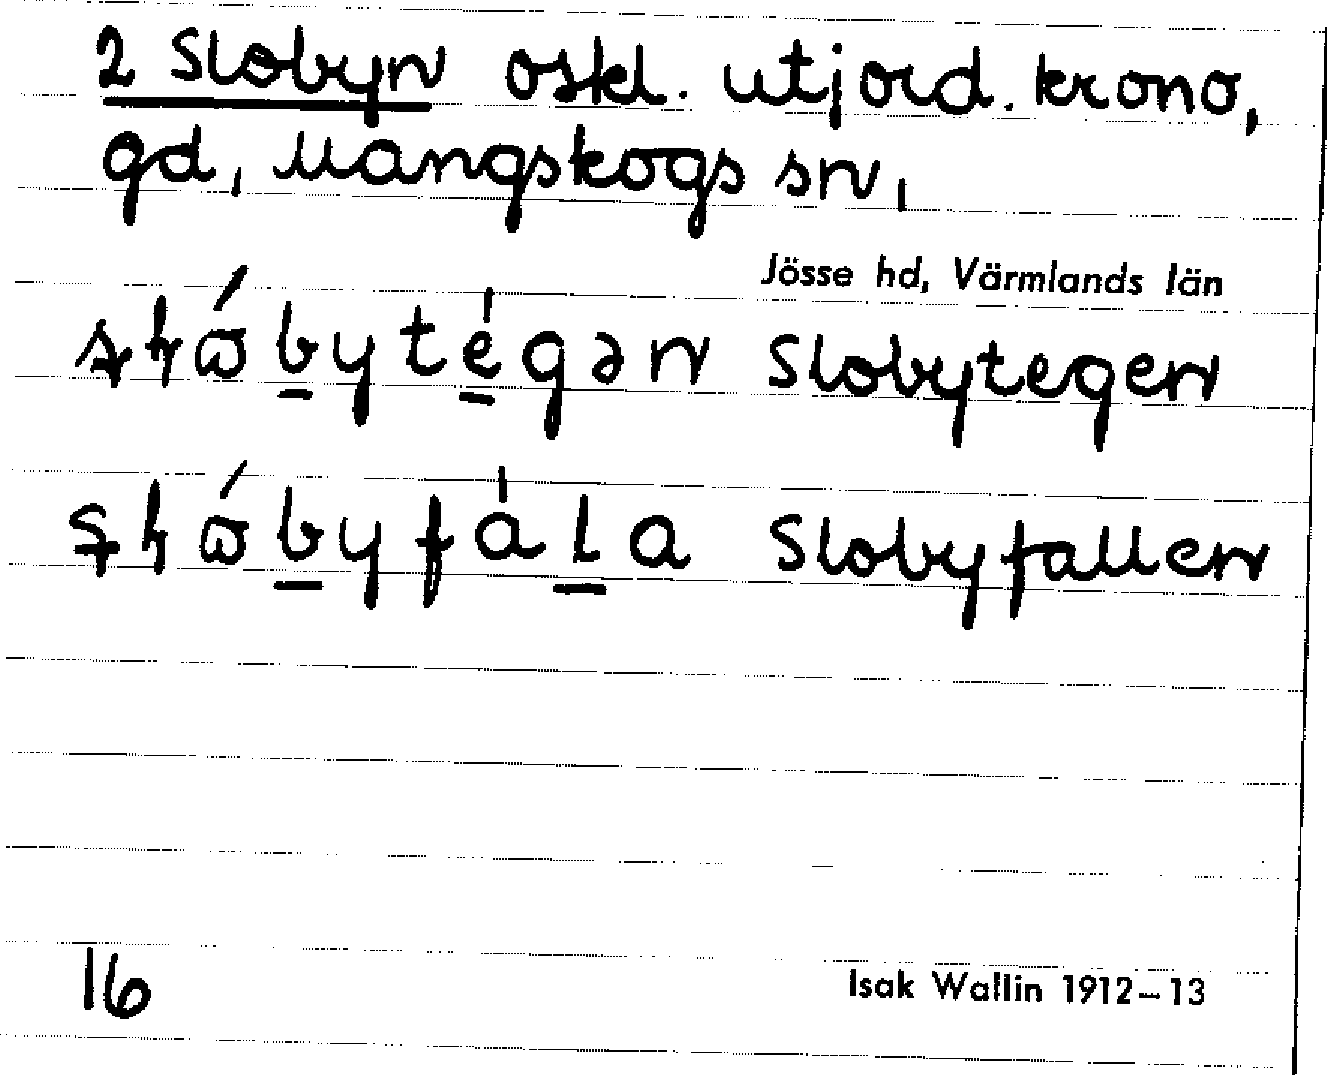 2 Slobyn oskl. utjord. krono,
gd, Mangskogs sn,
Jösse hd, Värmlands län
Slobytegen
Slobyfallen
16
Isak Wallin 1912–13